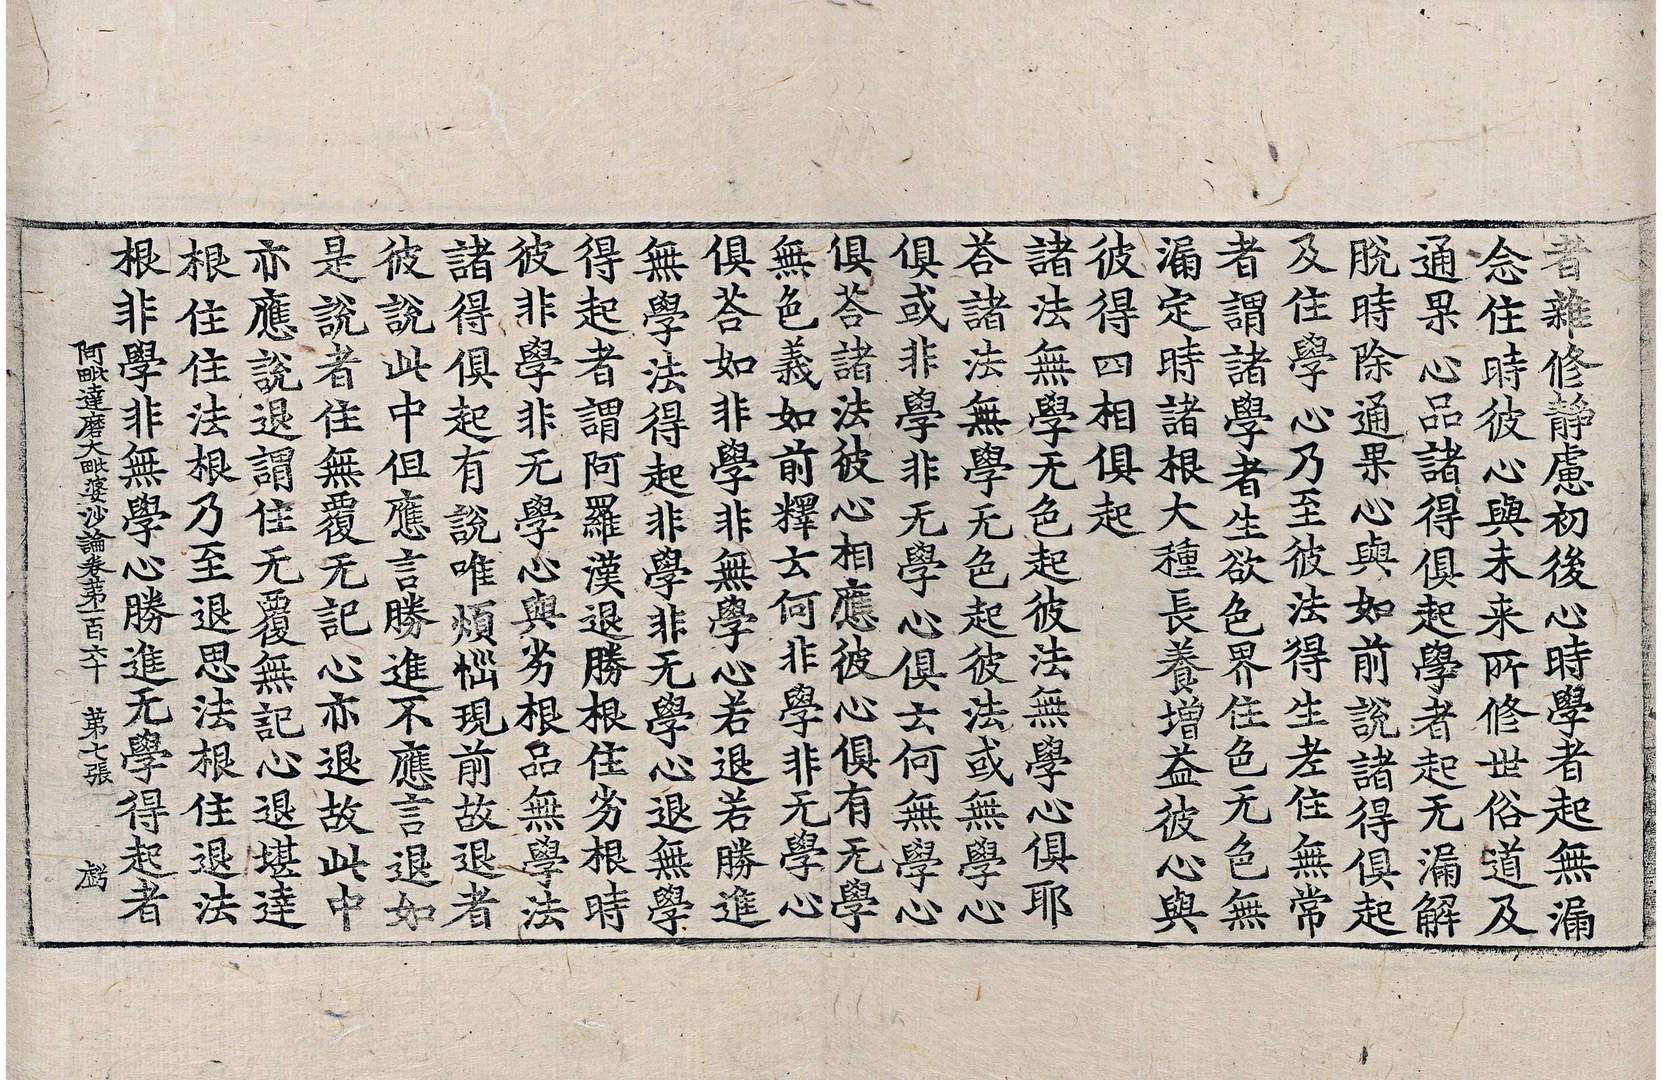 者雜修静慮初後心時學者起無漏
念住時彼心與未来所修世俗道及
通果心品諸得俱起學者起无漏解
脫時除通果心與如前說諸得俱起
及住學心乃至彼法得生老住無常
者謂諸學者生欲色界住色无色無
漏定時諸根大種長養增益彼心與
彼得四相俱起
諸法無學无色起彼法無學心俱耶
荅諸法無學无色起彼法或無學心
俱或非學非无學心俱云何無學心
俱荅諸法彼心相應彼心俱有无學
無色義如前釋云何非學非无學心
俱荅如非學非無學心若退若勝進
無學法得起非學非无學心退無學
得起者謂阿羅漢退勝根住劣根時
彼非學非无學心與劣根品無學法
諸得俱起有說唯煩惱現前故退者
彼說此中但應言勝進不應言退如
是說者住無覆无記心亦退故此中
亦應說退謂住无覆無記心退堪達
根住住法根乃至退思法根住退法
根非學非無學心勝進无學得起者
阿毗達磨大毗婆沙論卷第一百六十 第七張